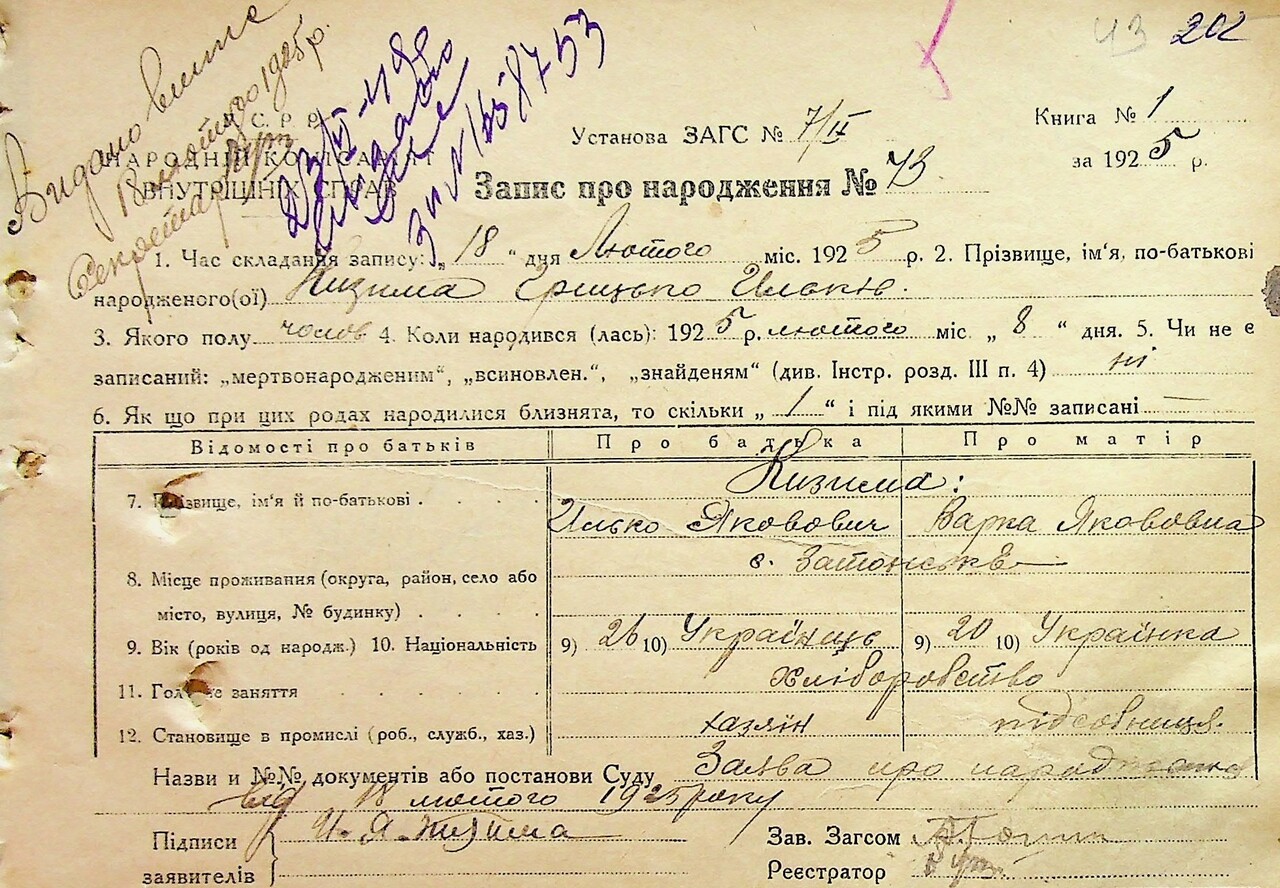 43 202
Видано випис
18 лютого 1925 р.
Секретар
С. Р. Р.
НАРОДНІЙ КОМІСАРІЯТ
ВНУТРІШНІХ СПРАВ
Установа ЗАГС № 7/ІІ
Книга № 1
за 1925 р.
Запис про народження № 43
1. Час складання запису: „18“ дня Лютого міс. 1925 р. 2. Прізвище, ім'я, по-батькові
народженого(ої) Кизима Грицько Ильків.
3. Якого полу чолов 4. Коли народився (лась): 1925 р. лютого міс „8“ дня. 5. Чи не є
записаний: „мертвонародженим“, „всиновлен.“, „знайденям“ (див. Інстр. розд. III п. 4) ні
6. Як що при цих родах народилися близнята, то скільки „1“ і під якими №№ записані —
Відомості про батьків Про батька Про матір
7. Прізвище, ім'я й по-батькові . Кизима:
Илько Якович Варка Якововна
8. Місце проживання (округа, район, село або с. Затонське
місто, вулиця, № будинку) .
9. Вік (років од народж.) 10. Національність 9) 26 10) Українець 9) 20 10) Українка
11. Головне заняття хліборобство
12. Становище в промислі (роб., служб., хаз.) хазяїн підсобниця.
Назви и №№ документів або постанови Суду Заява про народження
від 18 лютого 1925 року
Підписи И. Я. Кизима Зав. Загсом
заявителів Реєстратор